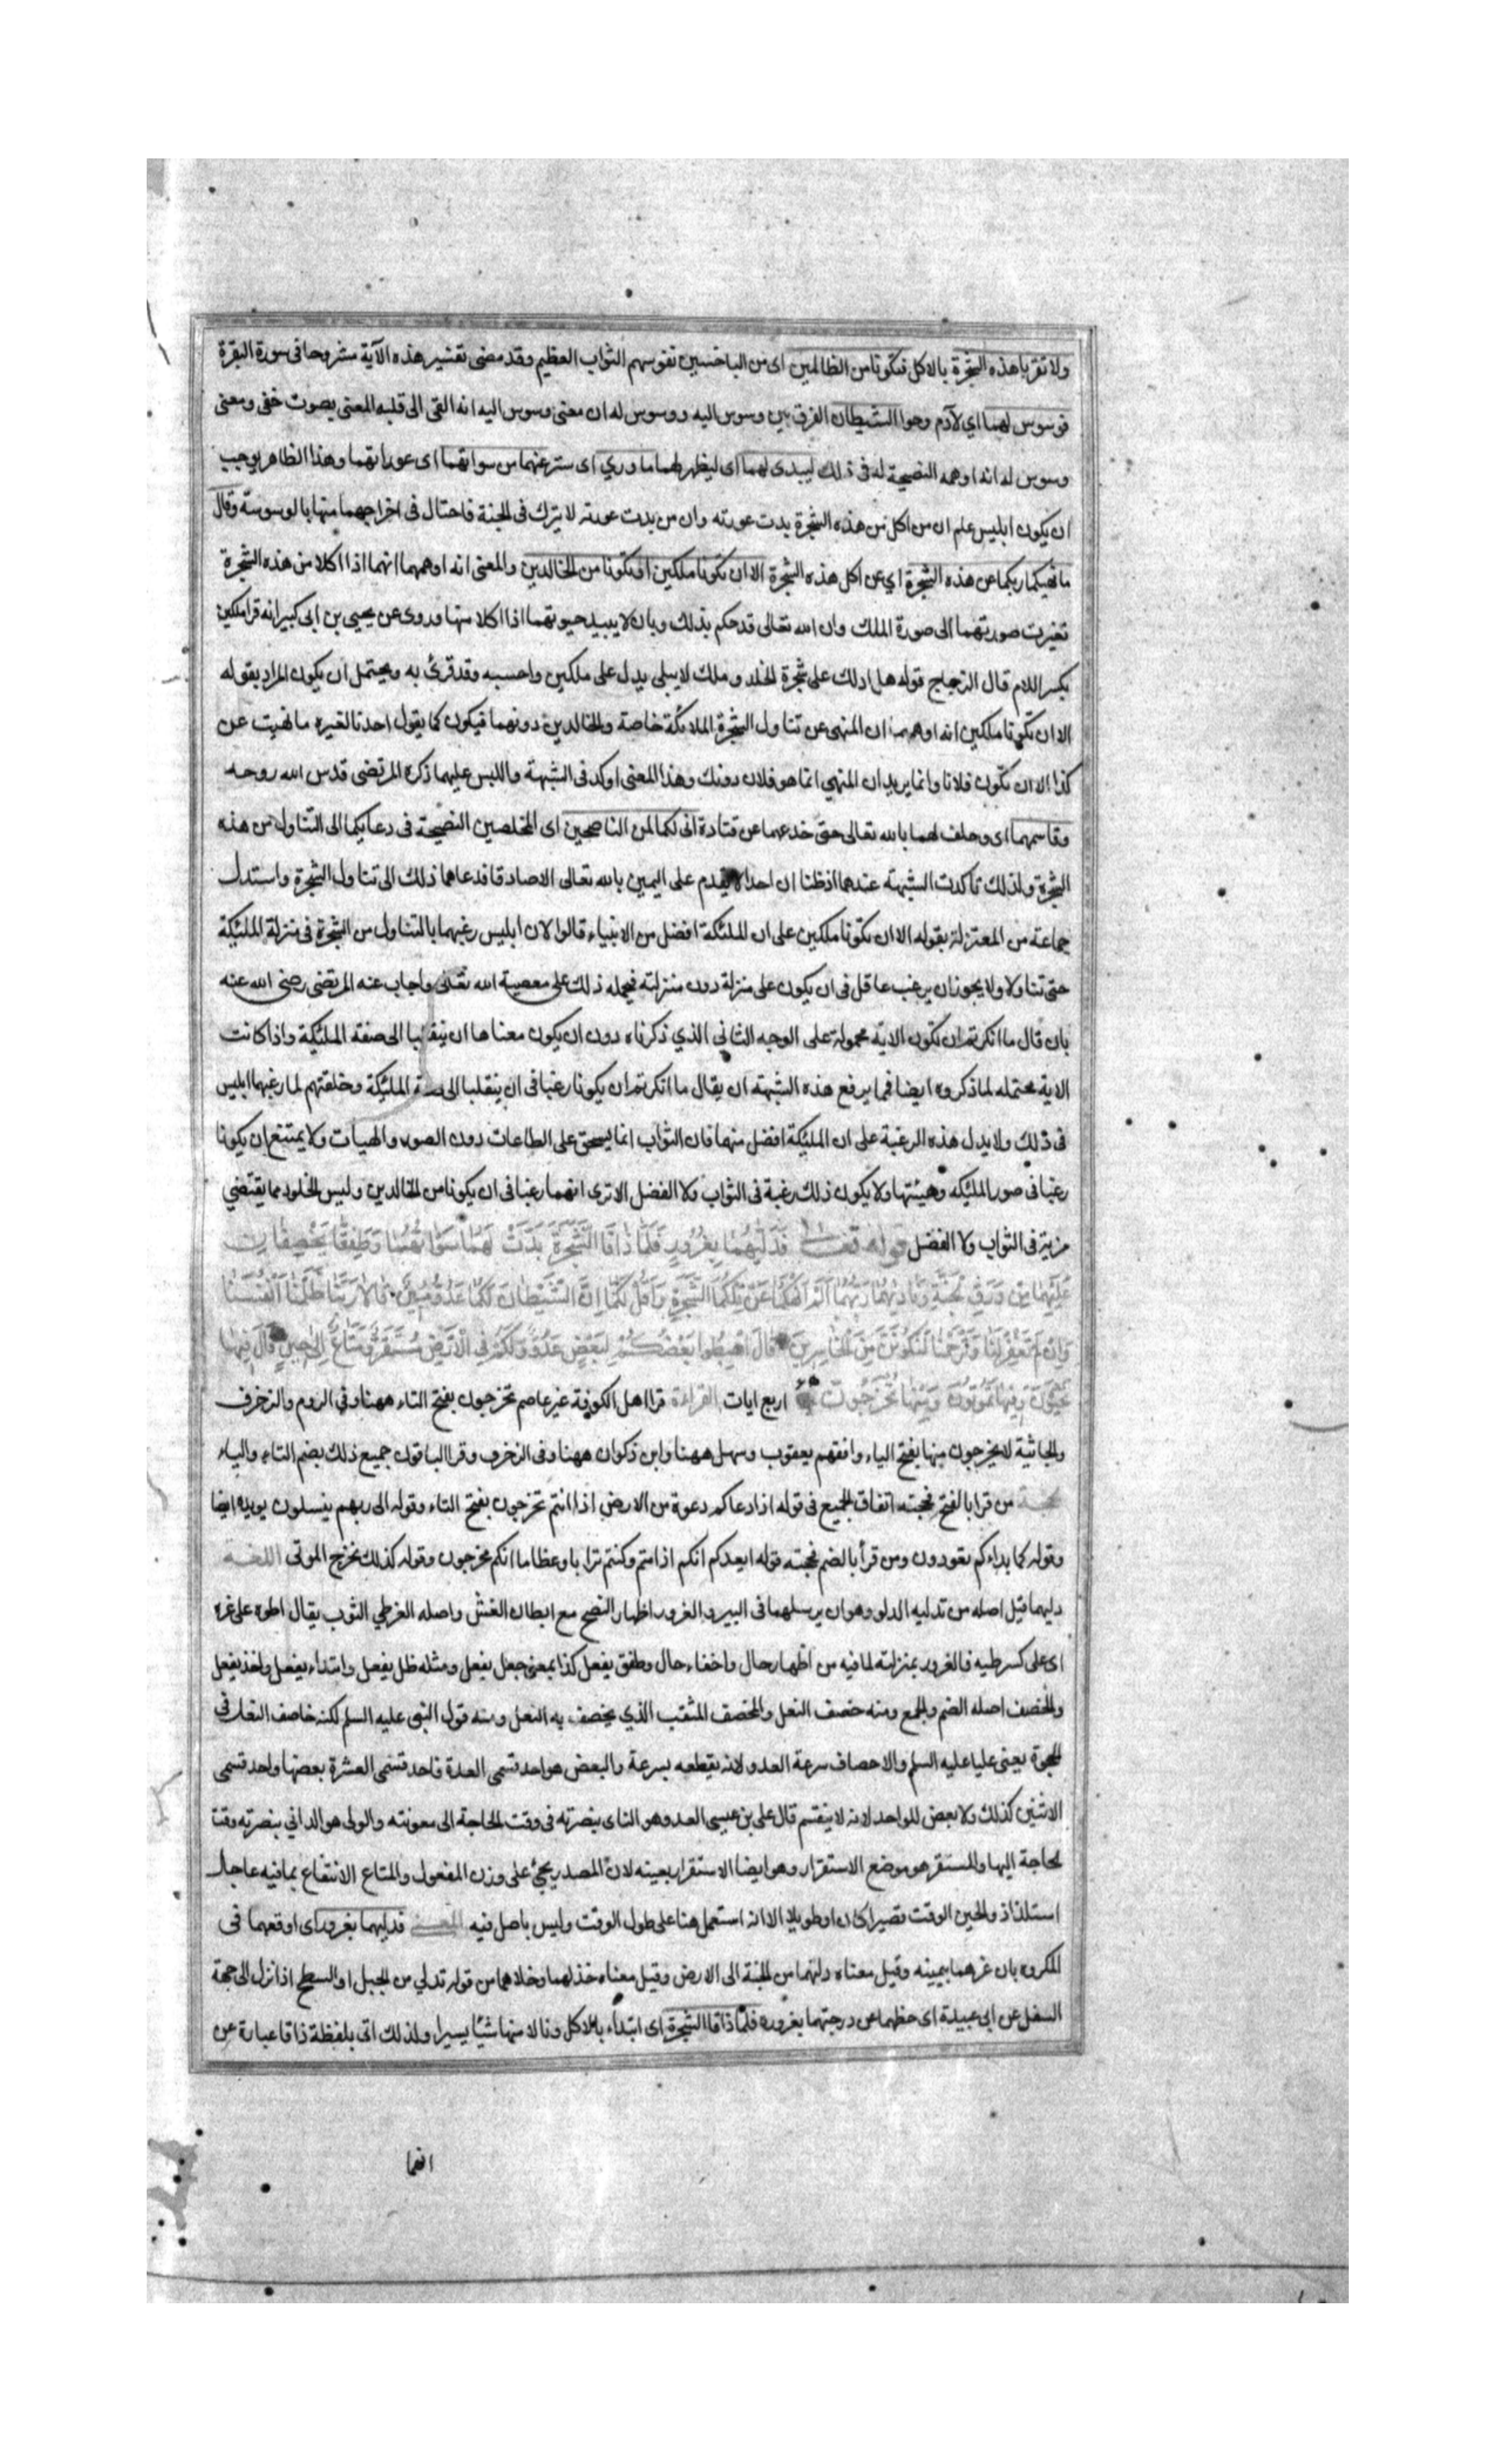 ولا تقربا هذه الشجرة بالاكل فتكونا من الظالمين اى من الباخسين نفوسهم الثواب العظيم وقد مضى تفسير هذه الآية مشروحا فى سورة البقرة
فوسوس لهما اي لآدم وحوا الشيطان الفرق بين وسوس اليه ووسوس له ان معنى وسوس اليه انه القى الى قلبه المعنى بصوت خفى ومعنى
وسوس له انه اوهمه النصيحة له فى ذلك ليبدى لهما اى ليظهر لهما ما وري اى ستر عنهما من سواتهما اى عوراتهما وهذا الظاهر يوجب
ان يكون ابليس علم ان من اكل من هذه الشجرة بدت عورته وان من بدت عورته لا يترك فى الجنة فاحتال فى اخراجهما منها بالوسوسة وقال
ما نهيكما ربكما عن هذه الشجرة اي عن اكل هذه الشجرة الا ان تكونا ملكين او تكونا من الخالدين والمعنى انه اوهمهما انهما اذا اكلا من هذه الشجرة
تغيرت صورتهما الى صورة الملك وان الله تعالى قد حكم بذلك وبان لا يبيد حيوتهما اذا اكلا منها وروى عن يحيى بن ابى كبير انه قرا ملكين
بكسر اللام قال الزجاج قوله هل ادلك على شجرة الخلد وملك لا يبلى يدل على ملكين واحسبه وقد قرئ به ويحتمل ان يكون المراد بقوله
الا ان تكونا ملكين انه اوهمهما ان المنهى عن تناول الشجرة الملائكة خاصة والخالدين دونهما فيكون كما يقول احدنا لغيره ما نهيت عن
كذا الا ان تكون فلانا وانما يريد ان المنهي انما هو فلان دونك وهذا المعنى اوكد فى الشبهة واللبس عليهما ذكره المرتضى قدس الله روحه
وقاسمهما اى وحلف لهما بالله تعالى حتى خدعهما عن قتادة انى لكما لمن الناصحين اى المخلصين النصيحة فى دعائكما الى التناول من هذه
الشجرة ولذلك تاكدت الشبهة عندهما اذ ظنا ان احدا لا يقدم على اليمين بالله تعالى الا صادقا فدعاهما ذلك الى تناول الشجرة واستدل
جماعة من المعتزلة بقوله الا ان تكونا ملكين على ان الملئكة افضل من الانبياء قالوا لان ابليس رغبهما بالتناول من الشجرة فى منزلة الملئكة
حتى تناولا ولا يجوز ان يرغب عاقل فى ان يكون على منزلة دون منزلته فيحمله ذلك على معصية الله تعالى واجاب عنه المرتضى رضى الله عنه
بان قال ما انكرتم ان تكون الاية محمولة على الوجه الثانى الذي ذكرناه دون ان يكون معناها ان ينقلبا الى صفة الملئكة واذا كانت
الاية محتمله لما ذكروه ايضا فما يرفع هذه الشبهة ان يقال ما انكرتم ان يكونا رغبا فى ان ينقلبا الى صفة الملئكة وخلقتهم لما رغبهما ابليس
فى ذلك ولا يدل هذه الرغبة على ان الملئكة افضل منهما فان الثواب انما يستحق على الطاعات دون الصور والهيات ولا يمتنع ان يكونا
رغبا فى صور الملئكه وهيئتها ولا يكون ذلك رغبة فى الثواب ولا الفضل الا ترى انهما رغبا فى ان يكونا من الخالدين وليس الخلود مما يقتضى
مزية فى الثواب ولا الفضل قوله تعالى فَدَلّيهُمَا بِغُرُورٍ فَلَمَّا ذَاقَا الشَّجَرَةَ بَدَتْ لَهُمَا سَوْاتُهُمَا وَطَفِقَا يَخْصِفَانِ
عَلَيْهِمَا مِنْ وَرَقِ الْجَنَّةِ وَنَادَيهُمَا رَبُّهُمَا اَلَمْ اَنْهَكُمَا عَنْ تِلْكُمَا الشَّجَرَةِ وَاَقُلْ لَكُمَا اِنَّ الشَّيْطَانَ لَكُمَا عَدُوٌّ مُبِينٌ قَالَا رَبَّنَا ظَلَمْنَا اَنْفُسَنَا
وَاِنْ لَمْ تَغْفِرْ لَنَا وَتَرْحَمْنَا لَنَكُونَنَّ مِنَ الْخَاسِرِينَ قَالَ اهْبِطُوا بَعْضُكُمْ لِبَعْضٍ عَدُوٌّ وَلَكُمْ فِى الْاَرْضِ مُسْتَقَرٌّ وَمَتَاعٌ اِلَى حِينٍ قَالَ فِيهَا
تَحْيَوْنَ وَفِيهَا تَمُوتُونَ وَمِنْهَا تُخْرَجُونَ اربع ايات القراءة قرا اهل الكوفة غير عاصم تخرجون بفتح التاء ههنا وفي الروم والزخرف
والجاثية لا يخرجون منها بفتح الياء وافقهم يعقوب وسهل ههنا وابن ذكوان ههنا وفى الزخرف وقرا الباقون جميع ذلك بضم التاء والياء
الحجة من قرا بالفتح فحجته اتفاق الجميع فى قوله اذا دعاكم دعوة من الارض اذا انتم تخرجون بفتح التاء وقوله الى ربهم ينسلون يويده ايضا
وقوله كما بداءكم تعودون ومن قرأ بالضم فحجته قوله ايعدكم انكم اذا متم وكنتم ترابا وعظاما انكم مخرجون وقوله كذلك نخرج الموتى اللغة
دليهما قيل اصله من تدليه الدلو وهو ان يرسلهما فى البير والغرور اظهار النصح مع ابطان الغش واصله الغر طي الثوب يقال اطوه على غره
اى على كسر طيه فالغرور بمنزلته لما فيه من اظهار حال واخفاء حال وطفق يفعل كذا بمعنى جعل يفعل ومثله ظل يفعل وابتداء يفعل واخذ يفعل
والخصف اصله الضم والجمع ومنه خصف النعل والمخصف المثقب الذي يخصف به النعل ومنه قول النبى عليه السلم لكنه خاصف النعل فى
الحجرة يعنى عليا عليه السلم والاحصاف سرعة العدو لانه يقطعه بسرعة والبعض هو احد قسمى العدة فاحد قسمى العشرة بعضها واحد قسمى
الاثنين كذلك ولا بعض للواحد لانه لا ينقسم قال على بن عيسى العدو هو الناى بنصرته فى وقت الحاجة الى معونته والولى هو الدانى بنصرته وقت
الحاجة اليها والمستقر هو موضع الاستقرار وهو ايضا الاستقرار بعينه لان المصدر يجئ على وزن المفعول والمتاع الانتفاع بما فيه عاجل
استلذاذ والحين الوقت قصيرا كان او طويلا الا انه استعمل هنا على طول الوقت وليس باصل فيه المعنى فدليهما بغرور اى اوقعهما فى
المكروه بان غرهما بيمينه وقيل معناه دليهما من الجنة الى الارض وقيل معناه خذلهما وخلاهما من قوله تدلي من الجبل او السطح اذا نزل الى جهة
السفل عن ابى عبيدة اى حطهما عن درجتهما بغروره فلما ذاقا الشجرة اى ابتداء بالاكل ونالا منها شيئا يسيرا ولذلك اتى بلفظة ذاقا عبارة عن
انهما